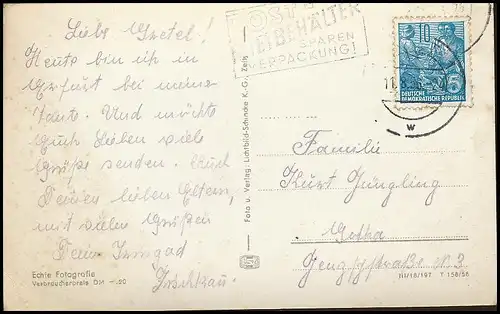 Liebe Gretel!
Heute bin ich in
Erfurt bei meiner
Tante. Und möchte
Euch Lieben viele
Grüße senden. Auch
Deinen lieben Eltern,
mit vielen Grüßen
Dein Irmgad
Echte Fotografie
Verbraucherpreis DM -.20
Foto u. Verlag: Lichtbild-Schincke K.-G., Zeitz
POST
BEHÄLTER
SPAREN
VERPACKUNG!
10
DEUTSCHE
DEMOKRATISCHE REPUBLIK
w
Familie
Kurt Jüngling
Gotha
III/18/197 T 158/56